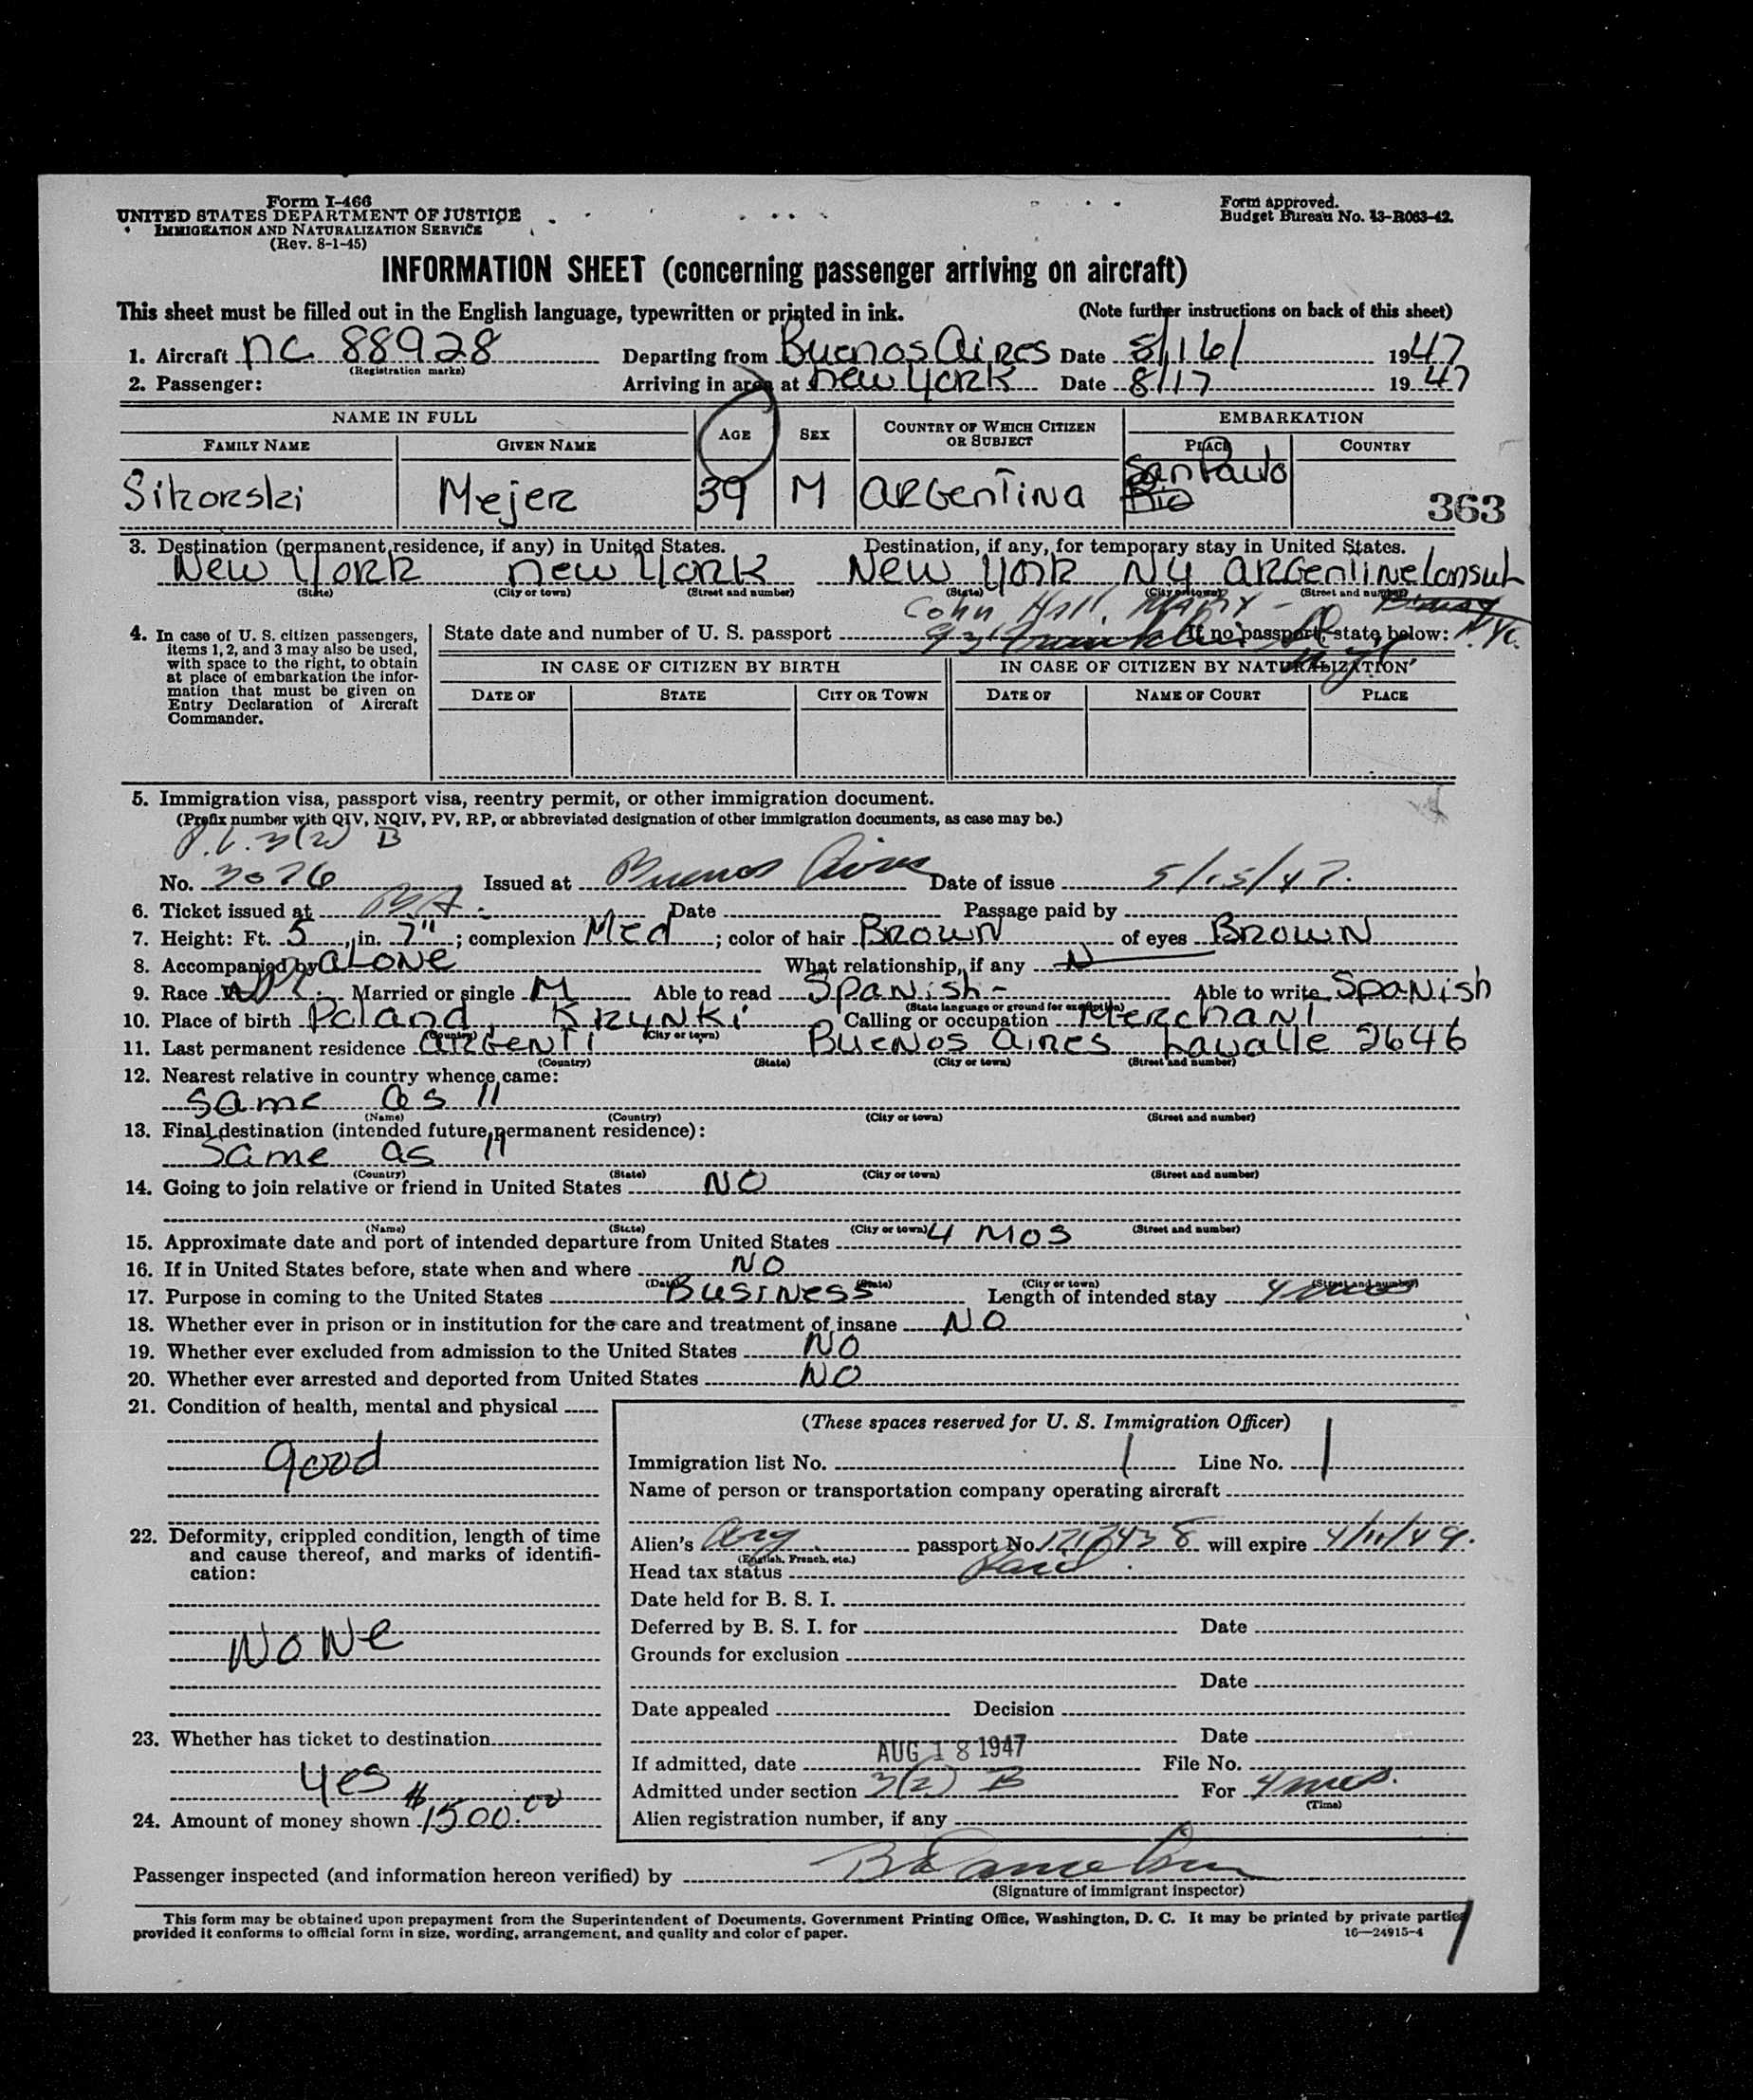 Form I-466
UNITED STATES DEPARTMENT OF JUSTICE
IMMIGRATION AND NATURALIZATION SERVICE
(Rev. 8-1-45)
Form approved.
Budget Bureau No. 43-R063-42.
INFORMATION SHEET (concerning passenger arriving on aircraft)
This sheet must be filled out in the English language, typewritten or printed in ink. (Note further instructions on back of this sheet)
1. Aircraft NC 88928 Departing from Buenos Aires Date 8/16/ 1947
(Registration marks)
2. Passenger: Arriving in area at New York Date 8/17 1947
NAME IN FULL AGE SEX COUNTRY OF WHICH CITIZEN OR SUBJECT EMBARKATION
FAMILY NAME GIVEN NAME PLACE COUNTRY
Sikorski Mejer 39 M ARGENTINA San Paulo Rio
363
3. Destination (permanent residence, if any) in United States. Destination, if any, for temporary stay in United States.
New York New York New York NY Argentine Consul
(State) (City or town) (Street and number) (State) (City or town) (Street and number)
Cohn Hall Marx
4. In case of U. S. citizen passengers, items 1, 2, and 3 may also be used, with space to the right, to obtain at place of embarkation the information that must be given on Entry Declaration of Aircraft Commander.
State date and number of U. S. passport If no passport, state below: NYC.
IN CASE OF CITIZEN BY BIRTH IN CASE OF CITIZEN BY NATURALIZATION
DATE OF STATE CITY OR TOWN DATE OF NAME OF COURT PLACE
5. Immigration visa, passport visa, reentry permit, or other immigration document.
(Prefix number with QIV, NQIV, PV, RP, or abbreviated designation of other immigration documents, as case may be.)
3(2) B
No. 3076 Issued at Buenos Aires Date of issue 5/15/47.
6. Ticket issued at BA. Date Passage paid by
7. Height: Ft. 5, in. 7"; complexion Med; color of hair Brown of eyes Brown
8. Accompanied by alone What relationship, if any N
9. Race Married or single M Able to read Spanish- Able to write Spanish
(State language or ground for exemption)
10. Place of birth Poland, KRYNKI Calling or occupation Merchant
(Country) (City or town)
11. Last permanent residence ARGENTI Buenos Aires Lavalle 2646
(Country) (State) (City or town) (Street and number)
12. Nearest relative in country whence came:
Same as 11
(Name) (Country) (City or town) (Street and number)
13. Final destination (intended future permanent residence):
Same as 11
(Country) (State) (City or town) (Street and number)
14. Going to join relative or friend in United States NO
(Name) (State) (City or town) (Street and number)
15. Approximate date and port of intended departure from United States 4 MOS
16. If in United States before, state when and where NO
(Date) (State) (City or town) (Street and number)
17. Purpose in coming to the United States Business Length of intended stay 4 mos
18. Whether ever in prison or in institution for the care and treatment of insane NO
19. Whether ever excluded from admission to the United States NO
20. Whether ever arrested and deported from United States NO
21. Condition of health, mental and physical
good
22. Deformity, crippled condition, length of time and cause thereof, and marks of identification:
NONE
23. Whether has ticket to destination
yes
24. Amount of money shown $1500.00
(These spaces reserved for U. S. Immigration Officer)
Immigration list No. 1 Line No. 1
Name of person or transportation company operating aircraft
Alien's Arg passport No. 1717438 will expire 4/11/49.
(English, French, etc.)
Head tax status Paid
Date held for B. S. I.
Deferred by B. S. I. for Date
Grounds for exclusion
Date
Date appealed Decision
Date
If admitted, date AUG 18 1947 File No.
Admitted under section 3(2) B For 4 mos.
(Time)
Alien registration number, if any
Passenger inspected (and information hereon verified) by
(Signature of immigrant inspector)
This form may be obtained upon prepayment from the Superintendent of Documents, Government Printing Office, Washington, D. C. It may be printed by private parties
provided it conforms to official form in size, wording, arrangement, and quality and color of paper. 16—24915-4